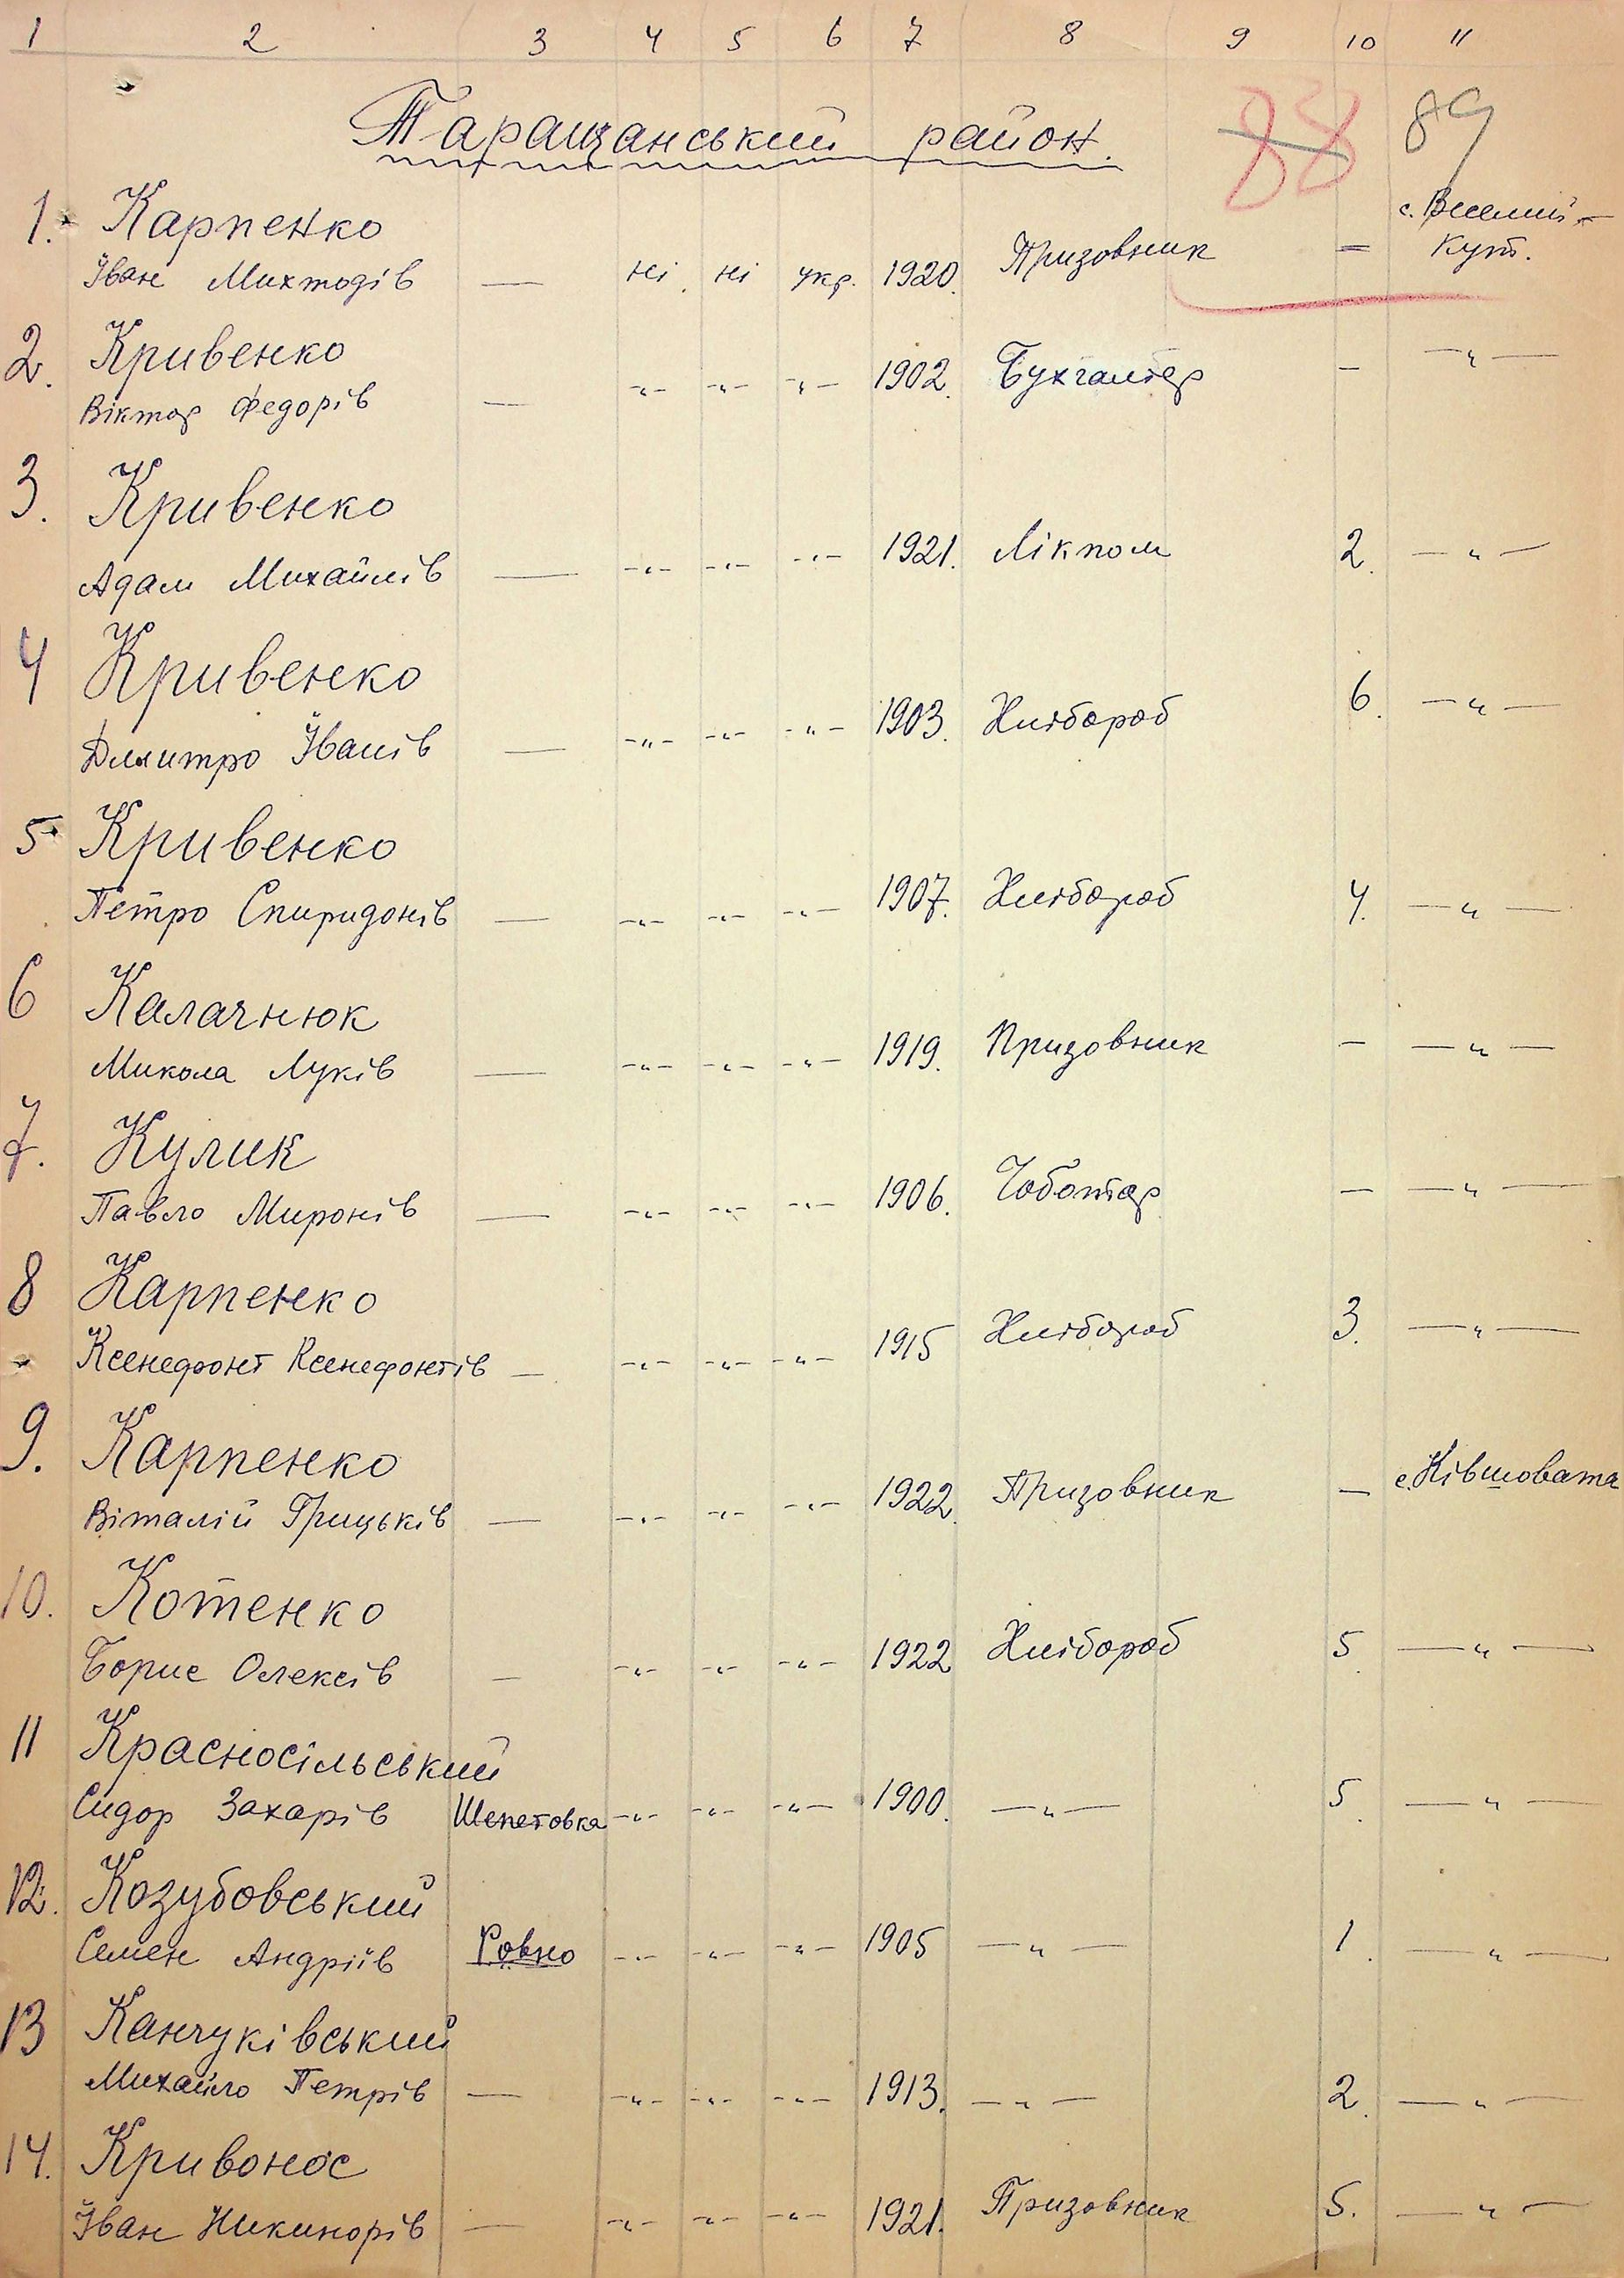 1 2 3 4 5 6 7 8 9 10 11
Таращанський район.
88 89
1. Карпенко
с. Веселий-
Кут.
Іван Михтодів — ні. ні укр. 1920. Призовник =
2. Кривенко
Віктор Федорів — -"- -"- -"- 1902. Бухгалтер - -"-
3. Кривенко
Адам Михайлів — -"- -"- -"- 1921. Лікпом 2. -"-
4 Кривенко
Дмитро Іванів — -"- -"- -"- 1903. Хлібороб 6. -"-
5 Кривенко
Петро Спиридонів — -"- -"- -"- 1907. Хлібороб 4. -"-
6 Калачнюк
Микола Луків — -"- -"- -"- 1919. Призовник - -"-
7. Кулик
Павло Миронів — -"- -"- -"- 1906. Чоботар - -"-
8 Карпенко
Ксенефонт Ксенефонтів — -"- -"- -"- 1915 Хлібороб 3. -"-
9. Карпенко
Віталій Грицьків — -"- -"- -"- 1922. Призовник - с. Ківшовата
10. Котенко
Борис Олексів — -"- -"- -"- 1922 Хлібороб 5. -"-
11 Красносільський
Сидор Захарів Шепетовка -"- -"- -"- 1900. -"- 5. -"-
12. Козубовський
Семен Андріїв Ровно -"- -"- -"- 1905 -"- 1. -"-
13 Канчуківський
Михайло Петрів — -"- -"- -"- 1913. -"- 2. -"-
14. Кривонос
Іван Никинорів — -"- -"- -"- 1921. Призовник 5. -"-